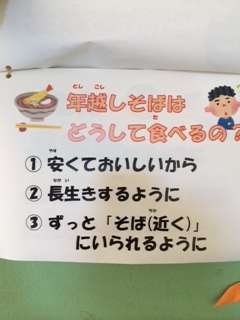 年越しそばは
どうして食べるの？
① 安くておいしいから
② 長生きするように
③ ずっと「そば(近く)」
にいられるように